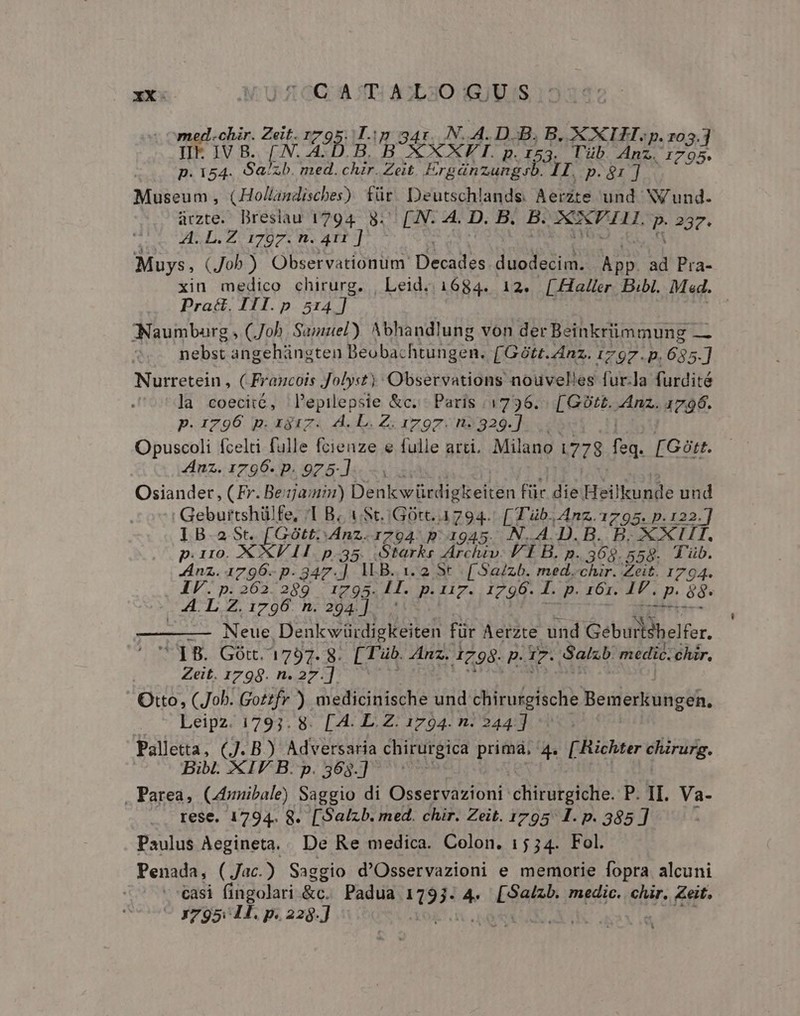 XX CATALOGUS
med.chir. Zeit. 1795. I. p 341. N. A. D. B. B. XXIII. p. 103.]
III. IV B. [N. A. D. B. B XXXVI. p. 153. Tüb Anz. 1795.
p. 154. Salzb. med. chir. Zeit Ergänzungsb. II. p. 81 ]
Museum, (Holländisches) für Deutschlands Aerzte und Wund-
ärzte. Breslau 1794 8. [N. A. D. B. B. XXVIII. p. 237.
A. L. Z 1797. n. 411 ]
Muys, (Joh) Observationum Decades duodecim. App. ad Pra-
xin medico chirurg. Leid. 1684. 12. [Haller Bibl. Med.
Pract. III. p 514 ]
Naumburg, (Joh Samuel) Abhandlung von der Beinkrümmung —
nebst angehängten Beobachtungen. [Gött. Anz. 1797. p. 635.]
Nurretein, (Francois Jolyst) Observations nouvelles fur la furdité
la coecité, l'epilepsie &c. Paris 1796. [Gött. Anz. 1796.
p. 1796 p. 1817. A. L. Z. 1797. n. 329.]
Opuscoli fcelti fulle fcienze e fulle arti. Milano 1778 feq. [Gött.
Anz. 1796. p. 975.]
Osiander, (Fr. Benjamin) Denkwürdigkeiten für die Heilkunde und
Geburtshülfe, I B. 1 St. Gött. 1794. [Tüb. Anz. 1795. p. 122.]
I B 2 St. [Gött. Anz. 1794 p 1945. N. A. D. B. B. XXIII.
p. 110. XXVII p. 35. Starks Archiv. VI B. p. 368. 558. Tüb.
Anz. 1796. p. 347.] II B. 1. 2 St [Salzb. med. chir. Zeit. 1794.
IV. p. 262. 289 1795. II. p. 117. 1796. I. p. 161. IV. p. 88.
A. L Z. 1796 n. 294.]
——— Neue Denkwürdigkeiten für Aerzte und Geburtshelfer.
I B. Gött. 1797. 8. [Tüb. Anz. 1798. p. 17. Salzb medic. chir.
Zeit. 1798. n. 27.]
Otto, (Joh. Gottfr ) medicinische und chirurgische Bemerkungen.
Leipz. 1793. 8. [A. L. Z. 1794. n. 244 ]
Palletta, (J. B ) Adversaria chirurgica prima. 4. [Richter chirurg.
Bibl. XIV B. p. 368.]
Parea, (Annibale) Saggio di Osservazioni chirurgiche. P. II. Va-
rese. 1794. 8. [Salzb. med. chir. Zeit. 1795 I. p. 385 ]
Paulus Aegineta. De Re medica. Colon. 1534. Fol.
Penada, (Jac.) Saggio d'Osservazioni e memorie fopra alcuni
casi fingolari &c. Padua 1793. 4. [Salzb. medic. chir. Zeit.
1795 II. p. 228.]